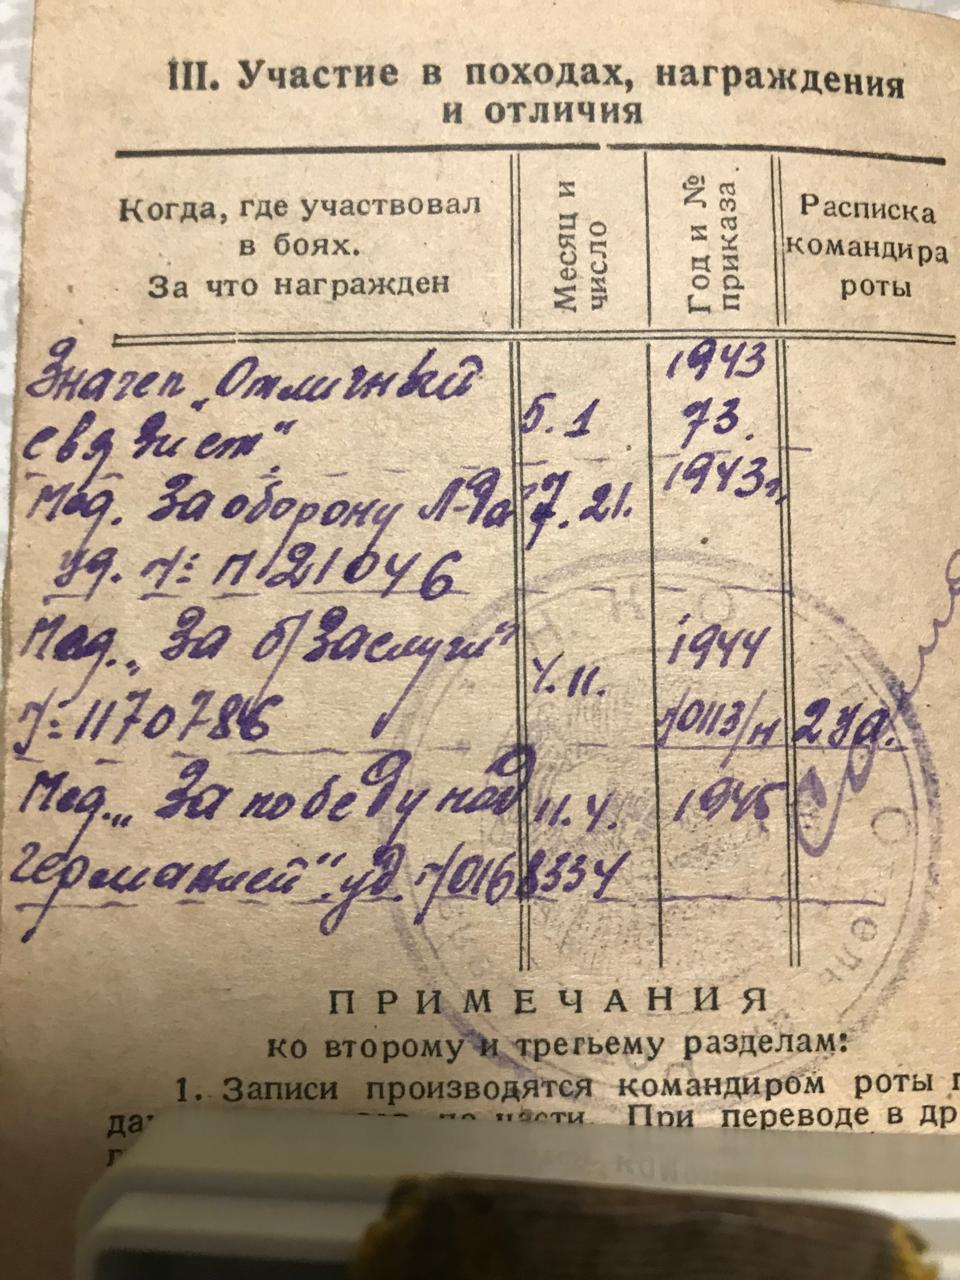 III. Участие в походах, награждения
и отличия
Когда, где участвовал
в боях.
За что награжден
Месяц и
число
Год и №
приказа.
Расписка
командира
роты
Значек „Отличный
связист"
5.1
1943
73.
Мед. За оборону Л-да
7.21.
1943г.
уд. №: П 21046
Мед. „За б/заслуги"
1944
№: 1170786
4.11.
№0113/н
Мед. „За победу над
11.4.
1945
Германией" уд. №0168334
ПРИМЕЧАНИЯ
ко второму и третьему разделам:
1. Записи производятся командиром роты
по части. При переводе в др